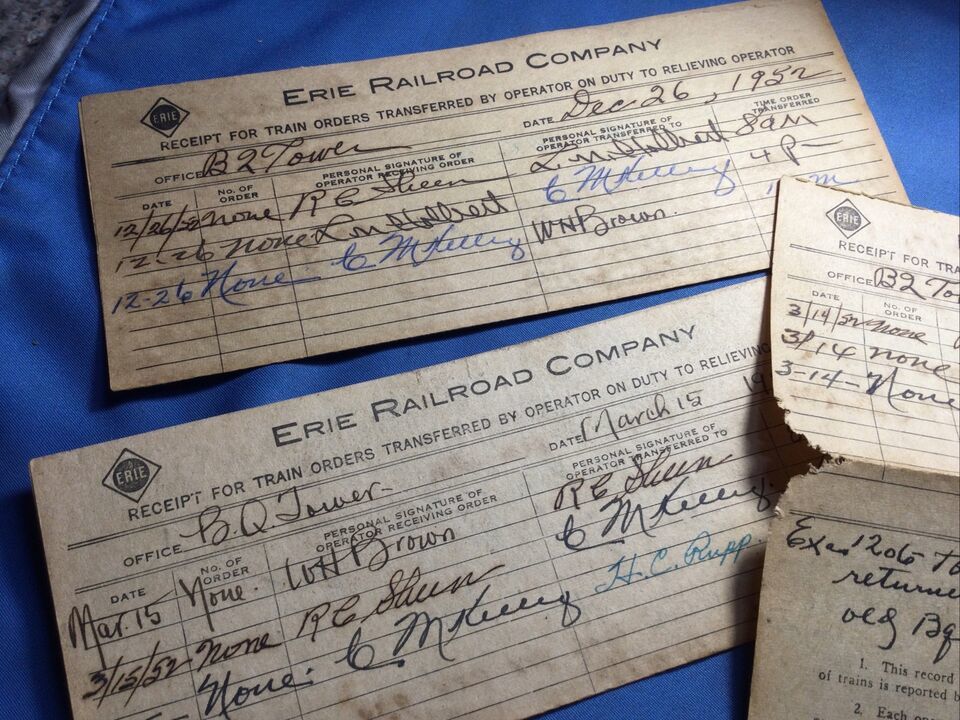 ERIE RAILROAD COMPANY
ERIE
RECEIPT FOR TRAIN ORDERS TRANSFERRED BY OPERATOR ON DUTY TO RELIEVING OPERATOR
OFFICE BQ Tower DATE Dec 26, 1952
DATE No. OF ORDER PERSONAL SIGNATURE OF OPERATOR RECEIVING ORDER PERSONAL SIGNATURE OF OPERATOR TRANSFERRED TO TIME ORDER TRANSFERRED
12/26/52 none R C Sheen L. M. Holbert 8 am
12-26 none L. M. Holbert C M Kelley 4 P-
12-26 None. C M Kelley WH Brown. m
ERIE RAILROAD COMPANY
ERIE
RECEIPT FOR TRAIN ORDERS TRANSFERRED BY OPERATOR ON DUTY TO RELIEVING
OFFICE B.Q. Tower- DATE March 15 19
DATE No. OF ORDER PERSONAL SIGNATURE OF OPERATOR RECEIVING ORDER PERSONAL SIGNATURE OF OPERATOR TRANSFERRED TO
Mar. 15 None. WH Brown R C Sheen
3/15/52 none R C Sheen C M Kelley.
None. C. M Kelley H. C. Rupp.
ERIE
RECEIPT FOR TRA
OFFICE BQ To
DATE No. OF ORDER
3/14/52 none
3/14 none
3-14- None
Exa. 1206 To
returne
old BQ
1. This record
of trains is reported b
2. Each